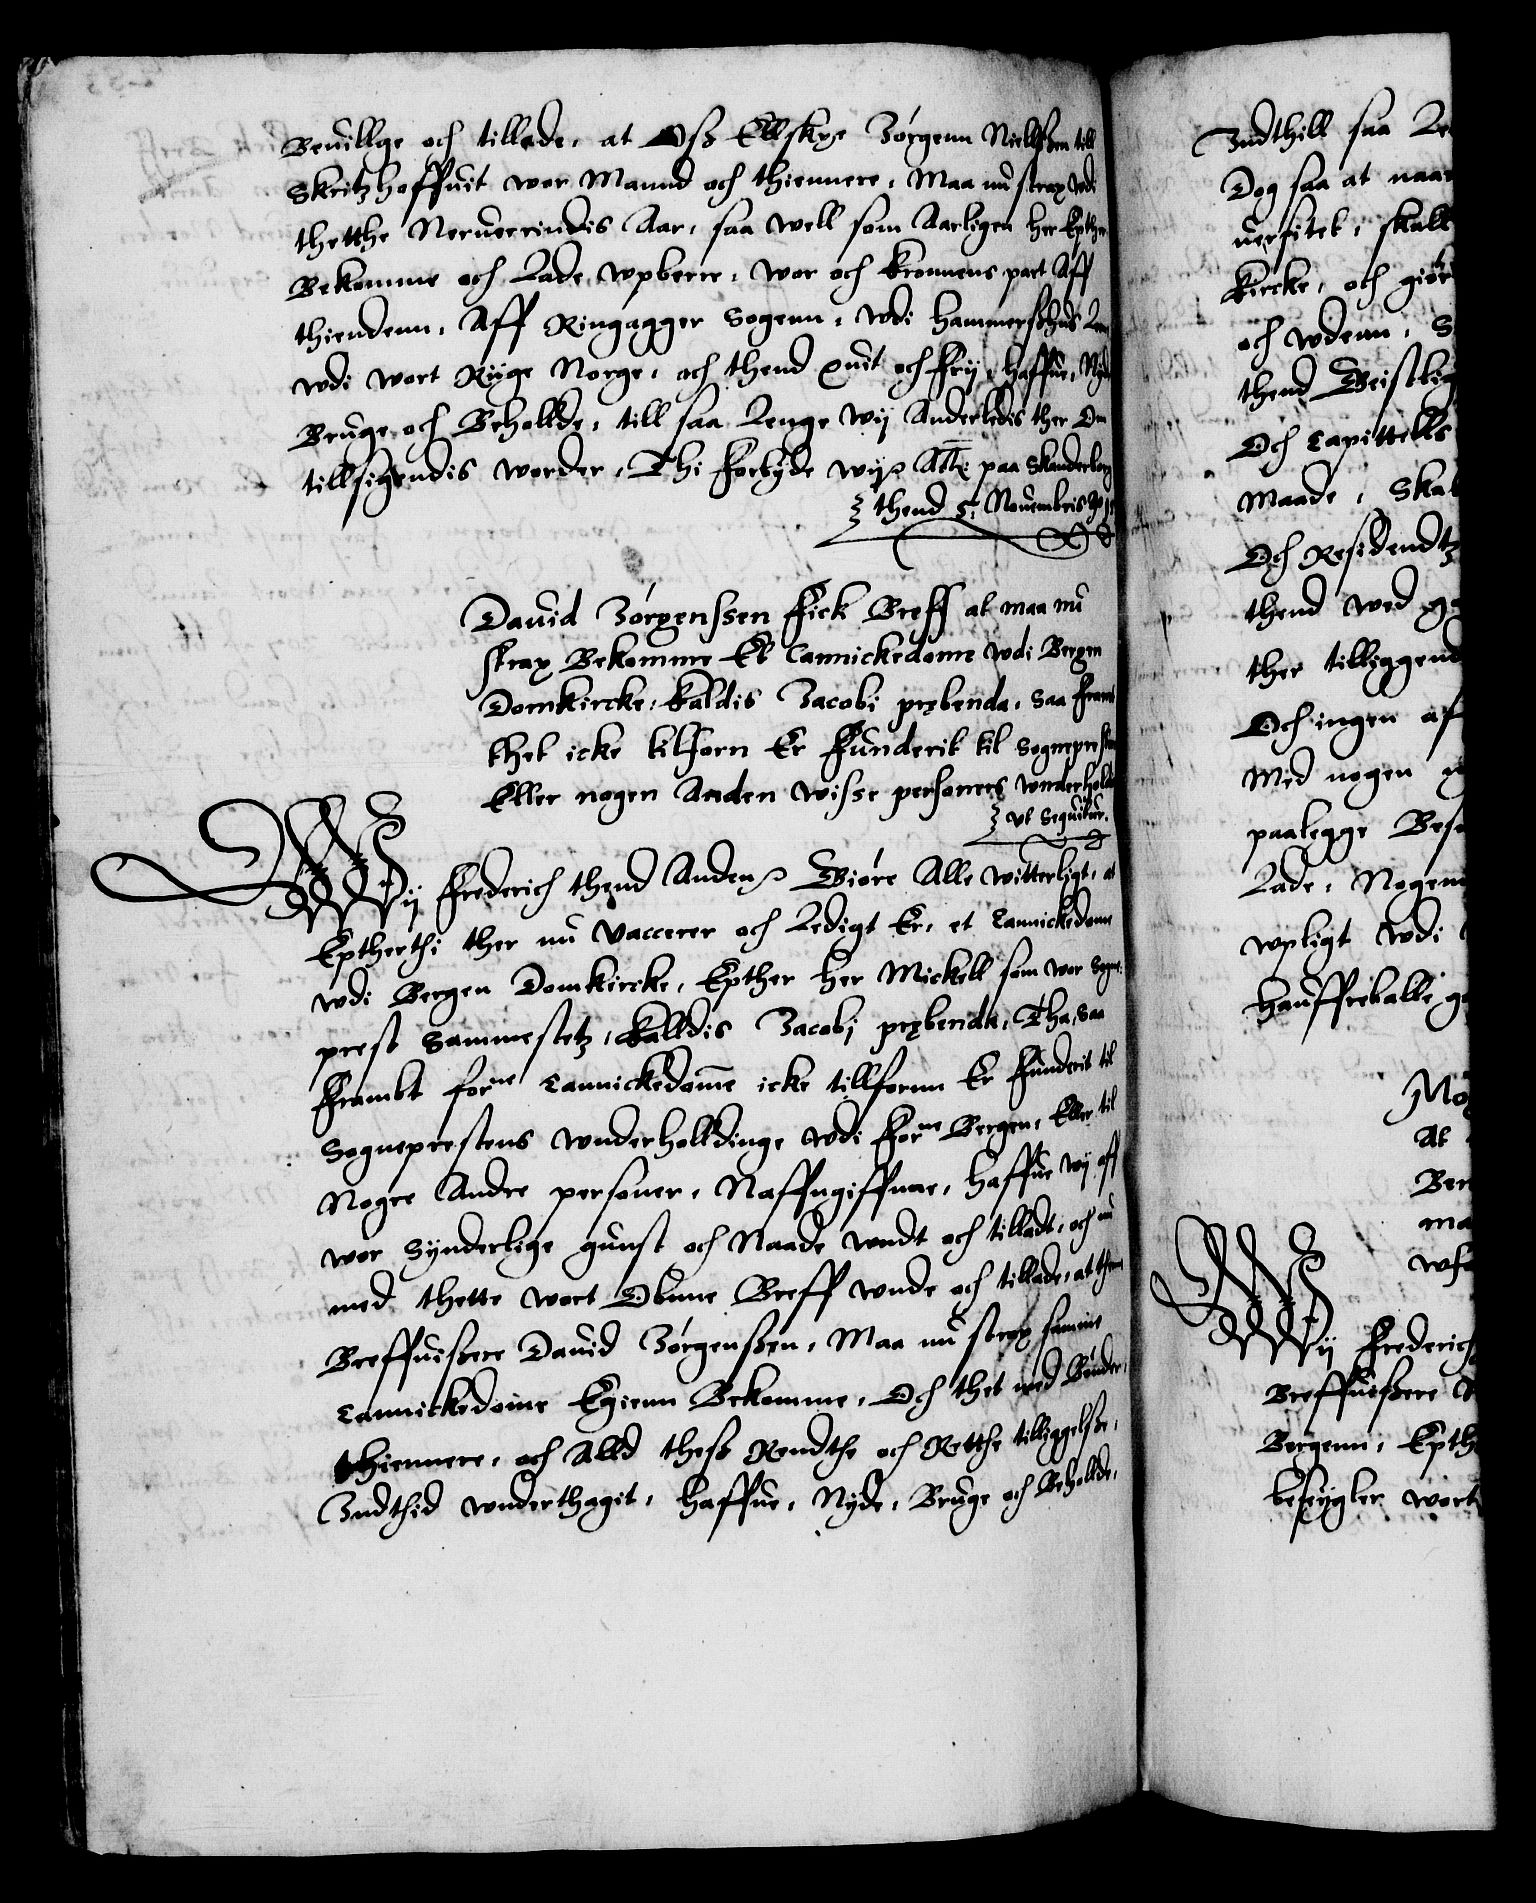 Beuillge och tillade, at Oss Ellskℓ: Jörgenn Niellssen till
Skritzhoffuit wor Mannd och thiennere, Maa nu strax wdi
thetthe Nerueerindis Aar, saa well som Aarligen her Epther
Bekomme och Lade wpberre, wor och Kronnens part Aff
thiendenn, Aff Ringagger Sogenn, wdi Hammershus Len
wdi wort Riige Norge, och thend quit och Frij, haffue, Nyde
Bruge och Beholde, till saa Lenge wij Anderledis ther Om
tillsigendis worder, Thi forbyde wij etc. Actt: paa Skanderborg
thend 5. Nouembris
Dauid Jörgenssen Fick Breff at maa nu
strax Bekomme Et Cannickedome wdi Bergen
Domkircke, Kaldis Jacobi prębenda, saa framt
thet icke tilforn Er Funderit til Sogneprestens
Eller nogen Anden wisse personers wnderhold
vt sequitur.
Wij Frederich thend Anden etc. Giöre Alle witterligt, at
Eptherthi ther nu Vaccerer och Ledigt Er, et Cannickedome
wdi Bergen Domkircke, Epther her Mickell som wor Sogne-
prest Sammestetz, Kalldis Jacobj prębenda, Tha, saa
Frambt forne Cannickedome icke tillfornn Er Funderit til
Sogneprestens wnderholldinge wdi Forne Bergen, Eller til
Nogre Andre personer, Naffngiffune, haffue wij aff
wor Synderlige gunst och Naade wndt och tilladt, och nu
med thette wort Obnne Breff wnde och tillade, at thenne
Breffuissere Dauid Jörgenssen, Maa nu strax samme
Cannickedome Egienn Bekomme, Och thet med Bönder,
thiennere, och Alld thess Rendthe och Retthe tilliggelsse,
Indthid wnderthagit, haffue, Nyde, Bruge och Beholde,
Indthill saa Le
Dog saa at naar
uersitet, skall
Kircke, och giör
och wdenn, S
thend Geistlig
Och Capittells
Maade, Skal
Och Residendtz
thend wed g
ther tilliggend
Och ingen af
Med nogen
paalegge Bes
Lade, Nogen
wpligt wdi
Mo
At
Ber
ma
Wij Frederich
Breffuissere
Bergenn, Epth
beseygler wort